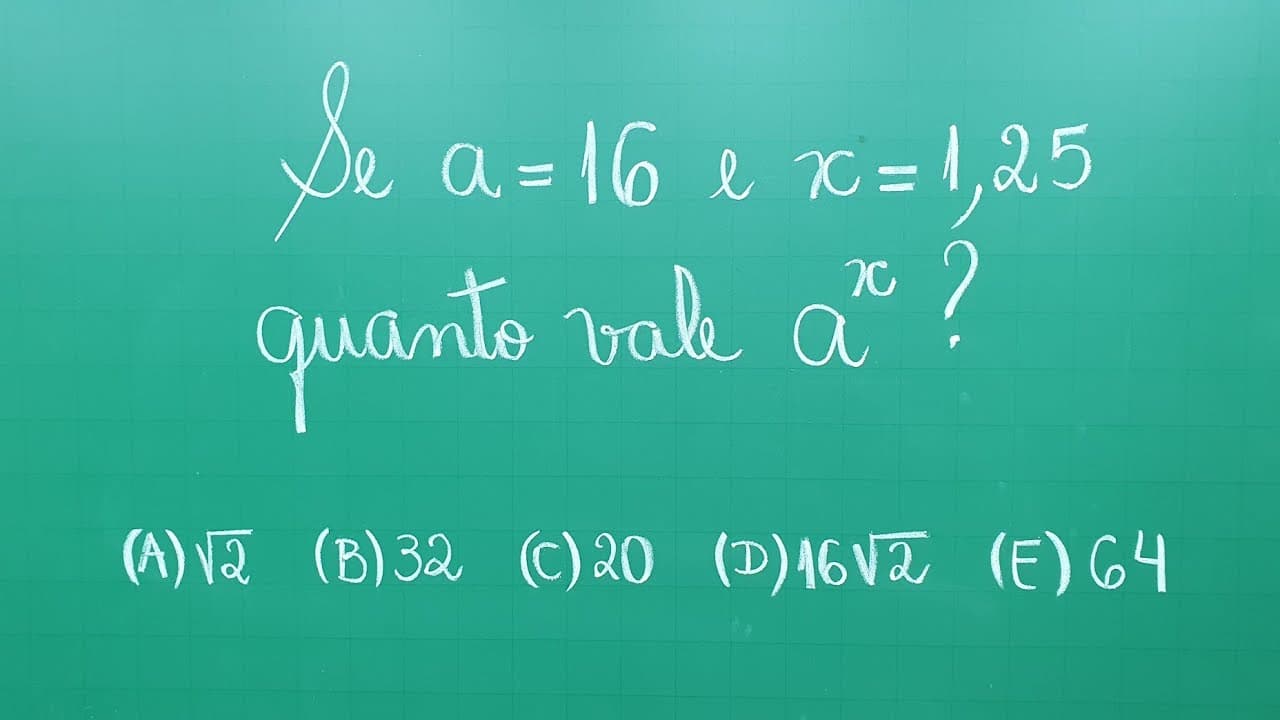 Se a = 16 e x = 1,25
quanto vale aˣ ?
(A) √2 (B) 32 (C) 20 (D) 16√2 (E) 64